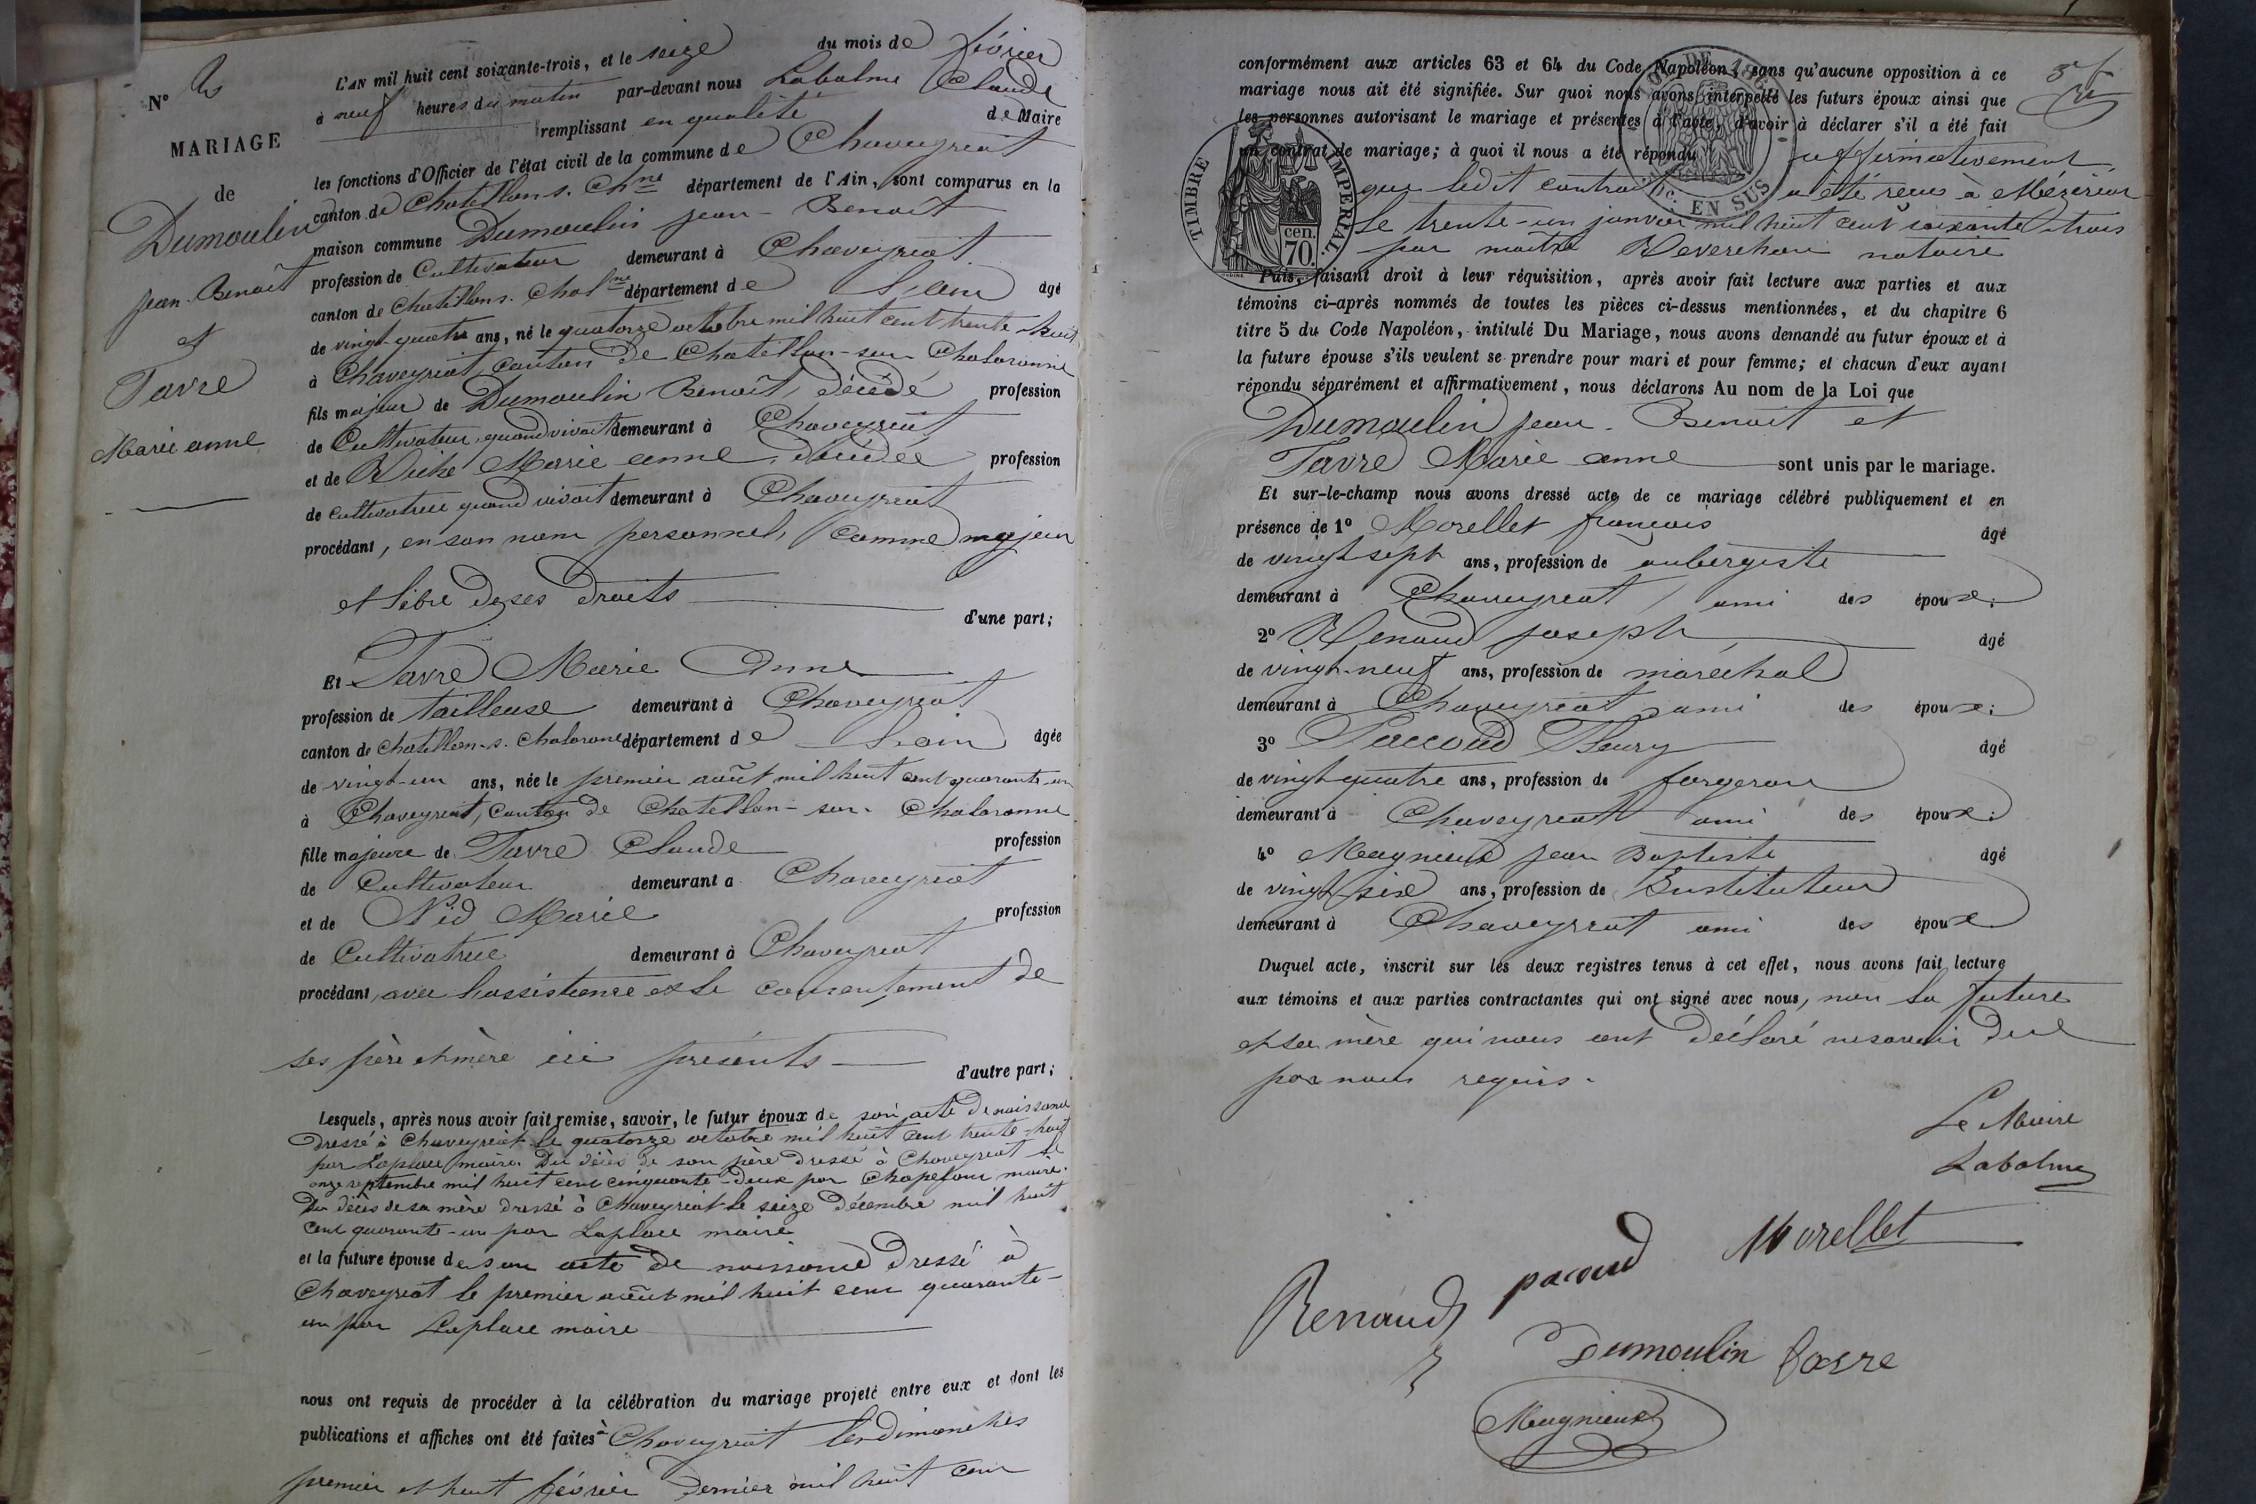 N° 2
MARIAGE
de
Dumoulin
Jean-Benoît
et
Favre
Marie anne
L'AN mil huit cent soixante-trois, et le seize du mois de février
à neuf heures du matin par-devant nous Labalme Claude
remplissant en qualité de Maire
les fonctions d'Officier de l'état civil de la commune de Chaveyriat
canton de Chatillon s. Ch.ne département de l'Ain, sont comparus en la
maison commune Dumoulin jean-Benoît
profession de Cultivateur demeurant à Chaveyriat
canton de Chatillon s. Chal.ne département de L'ain âgé
de vingt-quatre ans, né le quatorze octobre mil huit cent trente-huit
à Chaveyriat, canton de Chatillon-sur-Chalaronne
fils majeur de Dumoulin Benoît, décédé profession
de Cultivateur, quand vivait demeurant à Chaveyriat
et de Marie anne, décédée profession
de cultivatrice quand vivait demeurant à Chaveyriat
procédant, en son nom personnel, comme majeur
et libre de ses droits d'une part;
Et Favre Marie Anne
profession de tailleuse demeurant à Chaveyriat
canton de Chatillon-s. Chalaronne département de L'ain âgée
de vingt-un ans, née le premier août mil huit cent quarante-un
à Chaveyriat, canton de Chatillon-sur-Chalaronne
fille majeure de Favre Claude profession
de Cultivateur demeurant à Chaveyriat
et de Nid Marie profession
de Cultivatrice demeurant à Chaveyriat
procédant, avec l'assistance et le consentement de
ses père et mère ici présents d'autre part;
Lesquels, après nous avoir fait remise, savoir, le futur époux de son acte de naissance
dressé à Chaveyriat le quatorze octobre mil huit cent trente-huit
par Laplace maire. Du décès de son père dressé à Chaveyriat le
onze septembre mil huit cent cinquante-deux par maire.
Du décès de sa mère dressé à Chaveyriat le seize décembre mil huit
cent quarante-un par Laplace maire
et la future épouse de son acte de naissance dressé à
Chaveyriat le premier août mil huit cent quarante-
un par Laplace maire
nous ont requis de procéder à la célébration du mariage projeté entre eux et dont les
publications et affiches ont été faites à Chaveyriat les dimanches
premier et huit février dernier mil huit cent
conformément aux articles 63 et 64 du Code Napoléon, sans qu'aucune opposition à ce
mariage nous ait été signifiée. Sur quoi nous avons interpellé les futurs époux ainsi que
les personnes autorisant le mariage et présentes à l'acte, d'avoir à déclarer s'il a été fait
un contrat de mariage; à quoi il nous a été répondu affirmativement
que ledit contrat a été reçu à Mézériat
le trente-un janvier mil huit cent soixante-trois
par maître Reverchon notaire
TIMBRE IMPERIAL.
70 cen.
EN SUS
Puis, faisant droit à leur réquisition, après avoir fait lecture aux parties et aux
témoins ci-après nommés de toutes les pièces ci-dessus mentionnées, et du chapitre 6
titre 5 du Code Napoléon, intitulé Du Mariage, nous avons demandé au futur époux et à
la future épouse s'ils veulent se prendre pour mari et pour femme; et chacun d'eux ayant
répondu séparément et affirmativement, nous déclarons Au nom de la Loi que
Dumoulin jean-Benoit et
Favre Marie anne sont unis par le mariage.
Et sur-le-champ nous avons dressé acte de ce mariage célébré publiquement et en
présence de 1° Morellet françois âgé
de vingt sept ans, profession de aubergiste
demeurant à Chaveyriat, ami des époux;
2° Renaud joseph âgé
de vingt-neuf ans, profession de maréchal
demeurant à Chaveyriat ami des époux;
3° Paccoud Fleury âgé
de vingt quatre ans, profession de forgeron
demeurant à Chaveyriat ami des époux;
4° Magnieux jean Baptiste âgé
de vingt six ans, profession de Instituteur
demeurant à Chaveyriat ami des époux
Duquel acte, inscrit sur les deux registres tenus à cet effet, nous avons fait lecture
aux témoins et aux parties contractantes qui ont signé avec nous, non la future
et sa mère qui nous ont déclaré ne savoir de ce
par nous requis.
Le Maire
Labalme
Morellet
pacoud
Renaud
Dumoulin favre
Magnieux